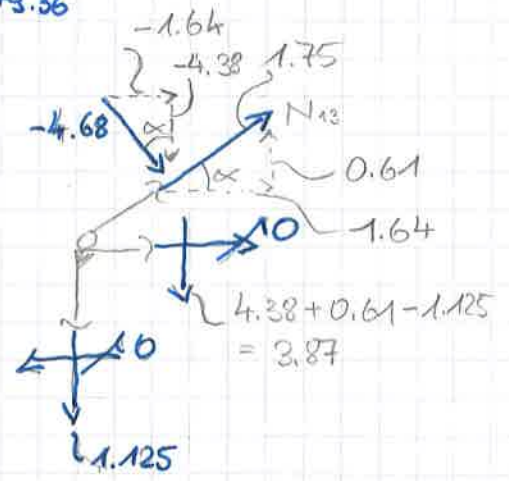 -1.64
-4.38
1.75
-4.68
α
N₁₃
α
0.61
1.64
0
4.38+0.61-1.125
= 3.87
0
1.125